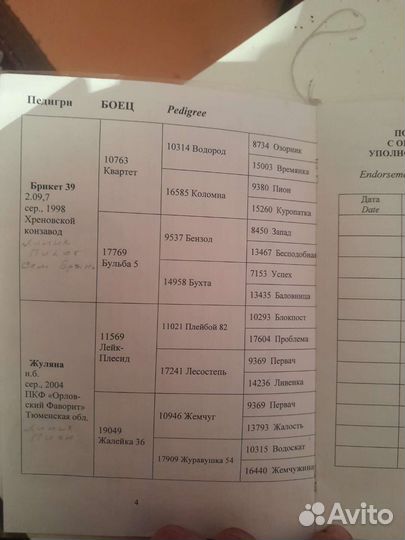 Педигри БОЕЦ Pedigree
Брикет 39
2.09,7
сер., 1998
Хреновской
конзавод
10763
Квартет
17769
Бульба 5
10314 Водород
16585 Коломна
9537 Бензол
14958 Бухта
8734 Озорник
15003 Времянка
9380 Пион
15260 Куропатка
8450 Запад
13467 Бесподобная
7153 Успех
13435 Баловница
Жуляна
н.б.
сер., 2004
ПКФ «Орлов-
ский Фаворит»
Тюменская обл.
11569
Лейк-
Плесид
19049
Жалейка 36
11021 Плейбой 82
17241 Лесостепь
10946 Жемчуг
17909 Журавушка 54
10293 Блокпост
17604 Проблема
9369 Первач
14236 Ливенка
9369 Первач
13793 Жалость
10315 Водоскат
16440 Жемчужина
4
ПО
С О
УПОЛНО
Endorseme
Дата
Date
Avito